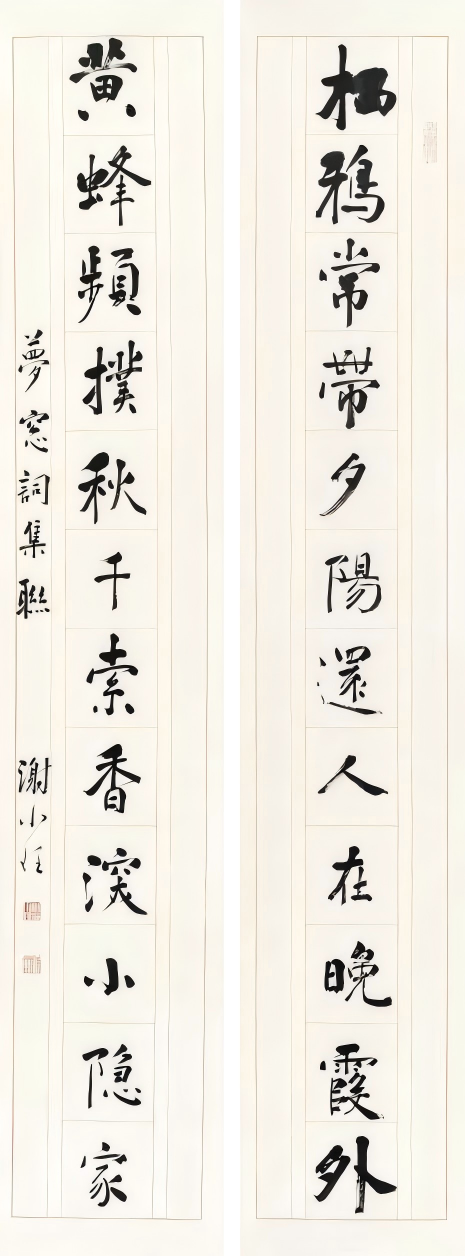 栖鴉常帶夕陽還人在晚霞外
黄蜂頻撲秋千索香深小隐家
夢窓詞集聯
謝小